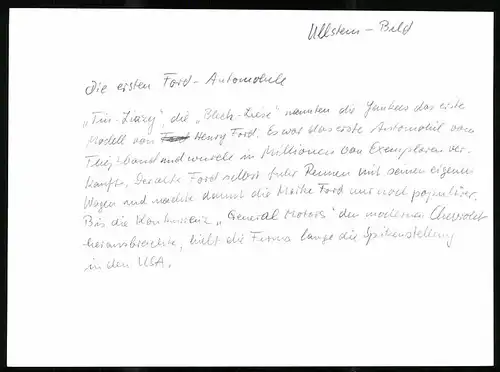 Ullstein - Bild
Die ersten Ford-Automobile
"Tin-Lizzy", die "Blech-Liese" nannten die Yankees das erste
Modell von Henry Ford. Es war das erste Automobil vom
Fließband und wurde in Millionen von Exemplaren ver-
kauft. Der alte Ford selbst fuhr Rennen mit seinen eigenen
Wagen und machte damit die Marke Ford nur noch populärer.
Bis die Konkurrenz "General Motors" den modernen Chevrolet
herausbrachte, hielt die Firma lange die Spitzenstellung
in den USA.